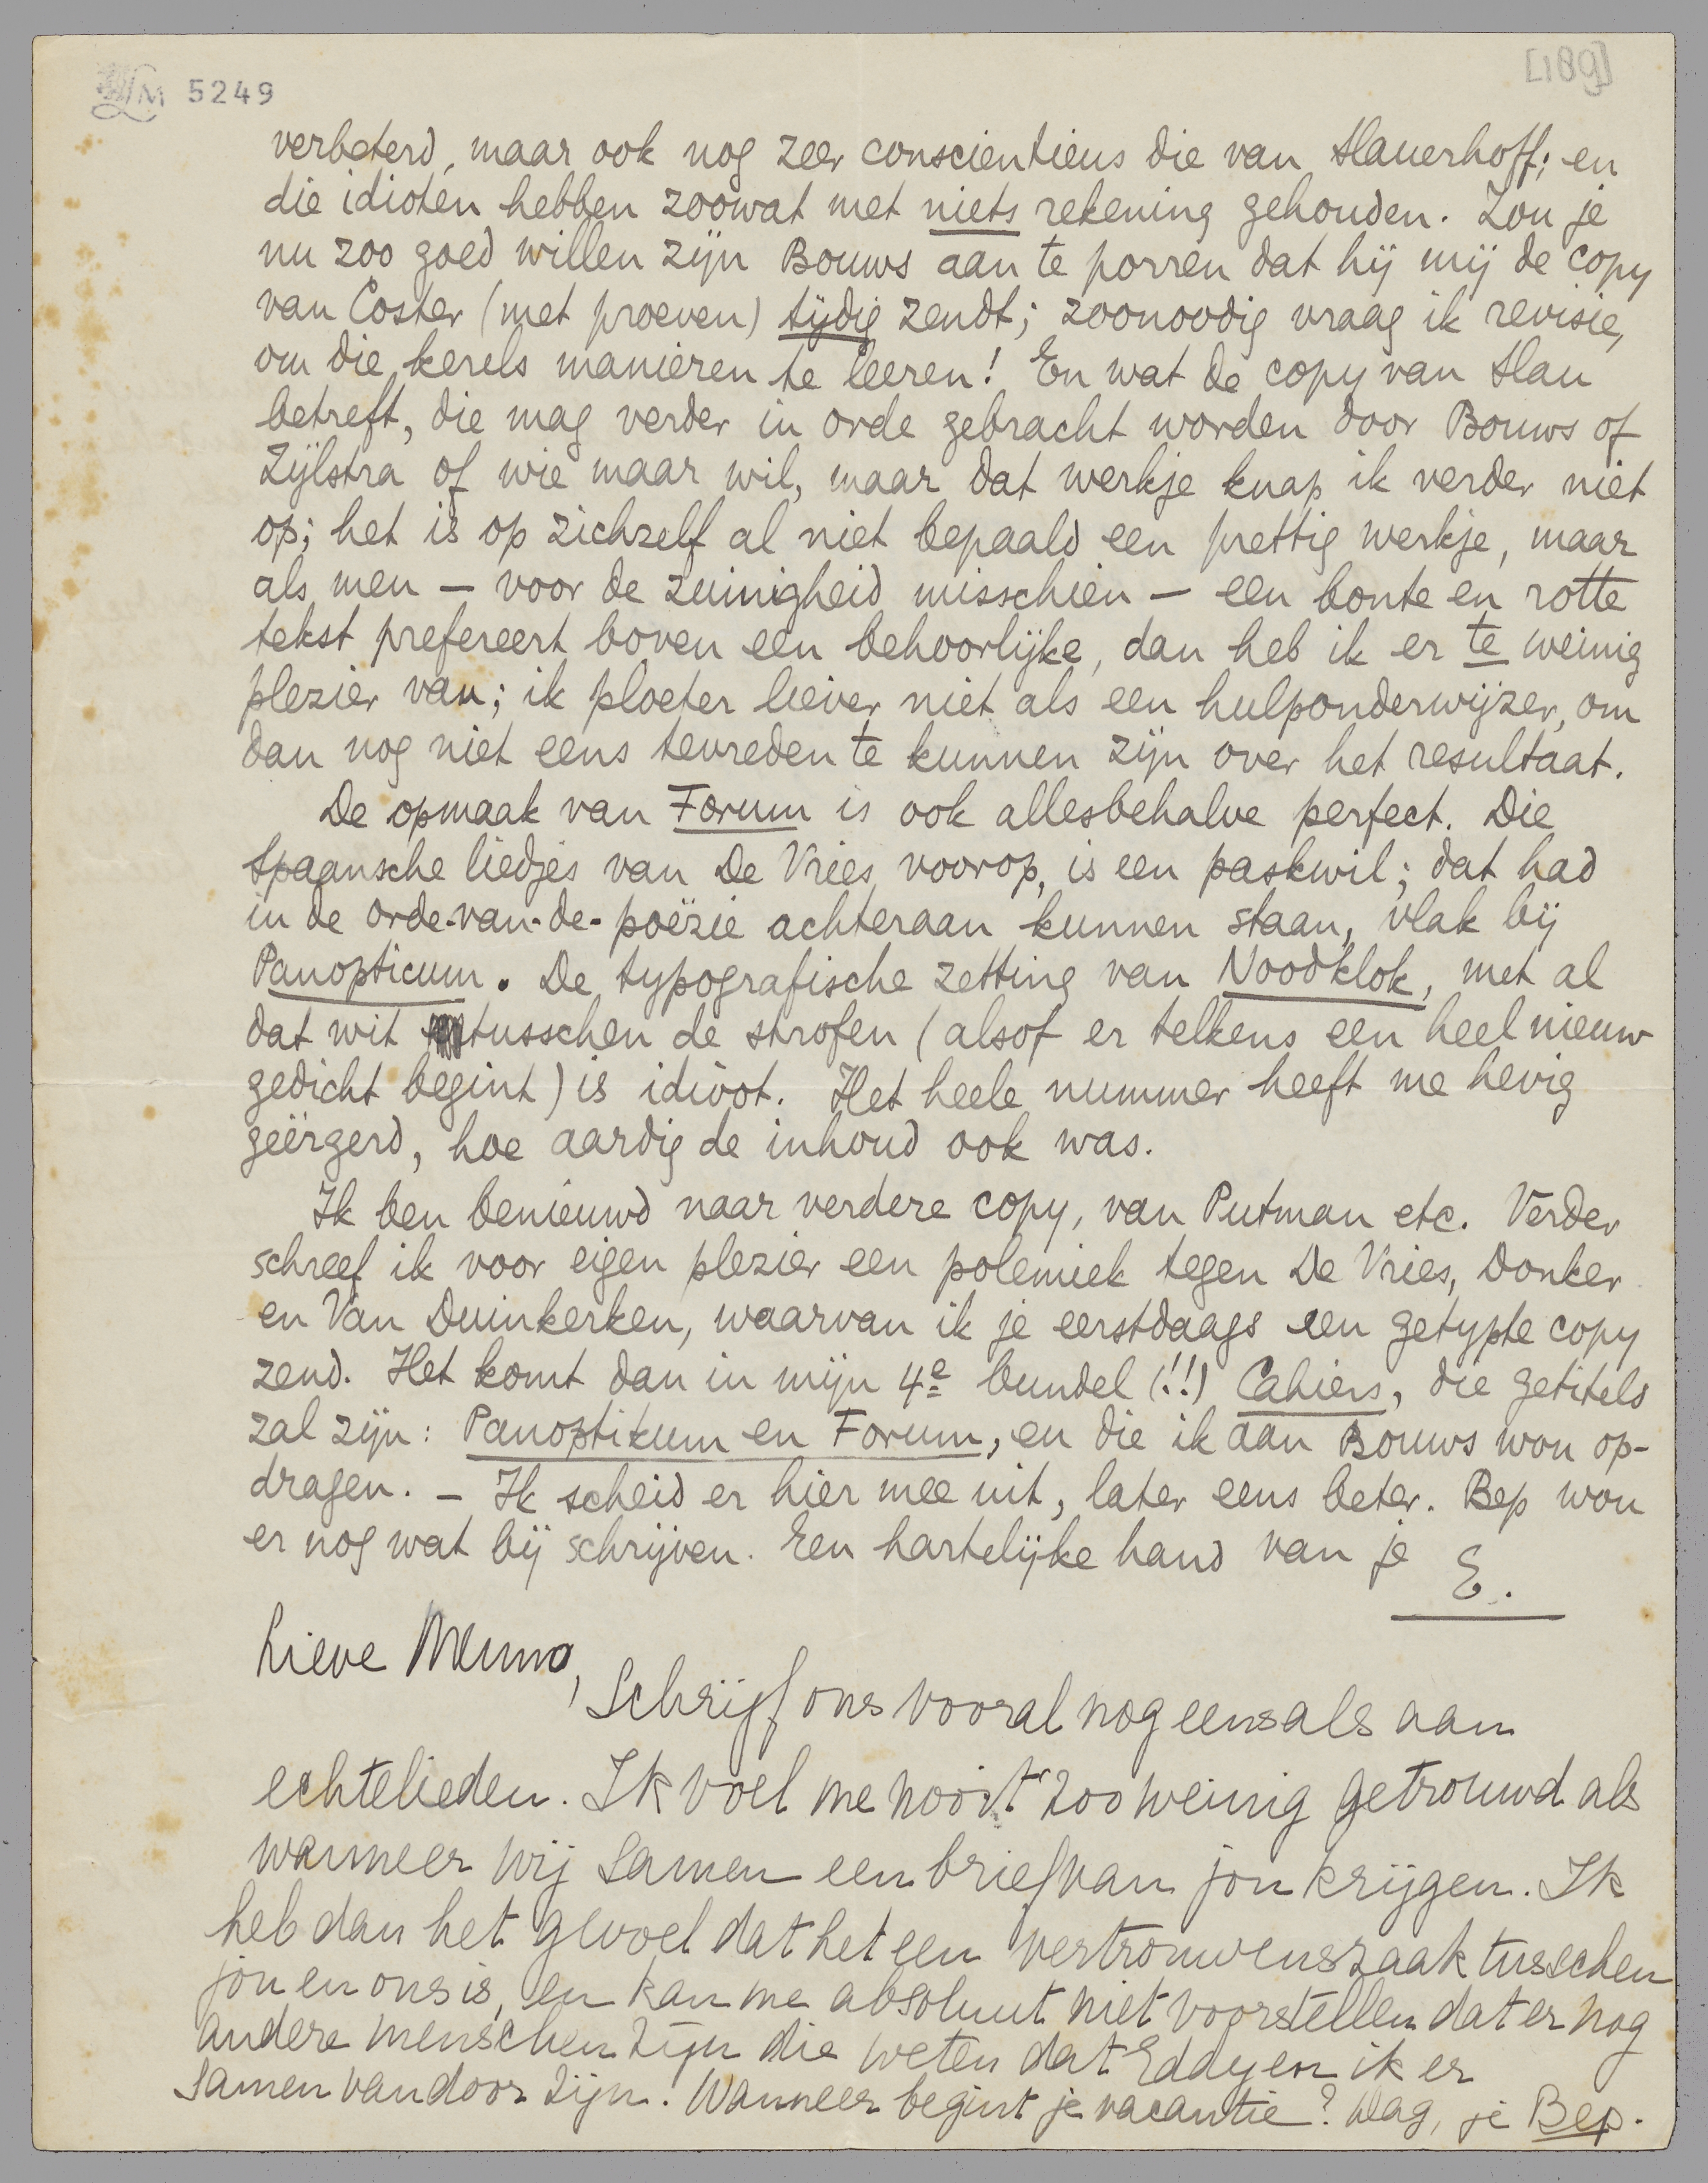 LM 5249
[189]
verbeterd, maar ook nog zeer conscientieus die van Slauerhoff; en
die idioten hebben zoowat met niets rekening gehouden. Zou je
nu zoo goed willen zijn Bouws aan te porren dat hij mij de copy
van Coster (met proeven) tijdig zendt; zoonoodig vraag ik revisie,
om die kerels manieren te leeren! En wat de copy van Slau
betreft, die mag verder in orde gebracht worden door Bouws of
Zijlstra of wie maar wil, maar dat werkje knap ik verder niet
op; het is op zichzelf al niet bepaald een prettig werkje, maar
als men — voor de zuinigheid misschien — een bonte en rotte
tekst prefereert boven een behoorlijke, dan heb ik er te weinig
plezier van; ik ploeter liever niet als een hulponderwijzer, om
dan nog niet eens tevreden te kunnen zijn over het resultaat.
De opmaak van Forum is ook allesbehalve perfect. Die
Spaansche liedjes van De Vries voorop, is een paskwil; dat had
in de orde-van-de-poëzie achteraan kunnen staan, vlak bij
Panopticum. De typografische zetting van Noodklok, met al
dat wit tusschen de strofen (alsof er telkens een heel nieuw
gedicht begint) is idioot. Het heele nummer heeft me hevig
geërgerd, hoe aardig de inhoud ook was.
Ik ben benieuwd naar verdere copy, van Putman etc. Verder
schreef ik voor eigen plezier een polemiek tegen De Vries, Donker
en Van Duinkerken, waarvan ik je eerstdaags een getypte copy
zend. Het komt dan in mijn 4e bundel (!!) Cahiers, die getiteld
zal zijn: Panoptikum en Forum, en die ik aan Bouws wou op-
dragen. — Ik scheid er hier mee uit, later eens beter. Bep wou
er nog wat bij schrijven. Een hartelijke hand van je
E.
Lieve Menno,
Schrijf ons vooral nog eens als aan
echtelieden. Ik voel me nooit zoo weinig getrouwd als
wanneer wij samen een brief van jou krijgen. Ik
heb dan het gevoel dat het een vertrouwenszaak tusschen
jou en ons is, en kan me absoluut niet voorstellen dat er nog
andere menschen zijn die weten dat Eddy en ik er
samen vandoor zijn. Wanneer begint je vacantie? Dag, je Bep.